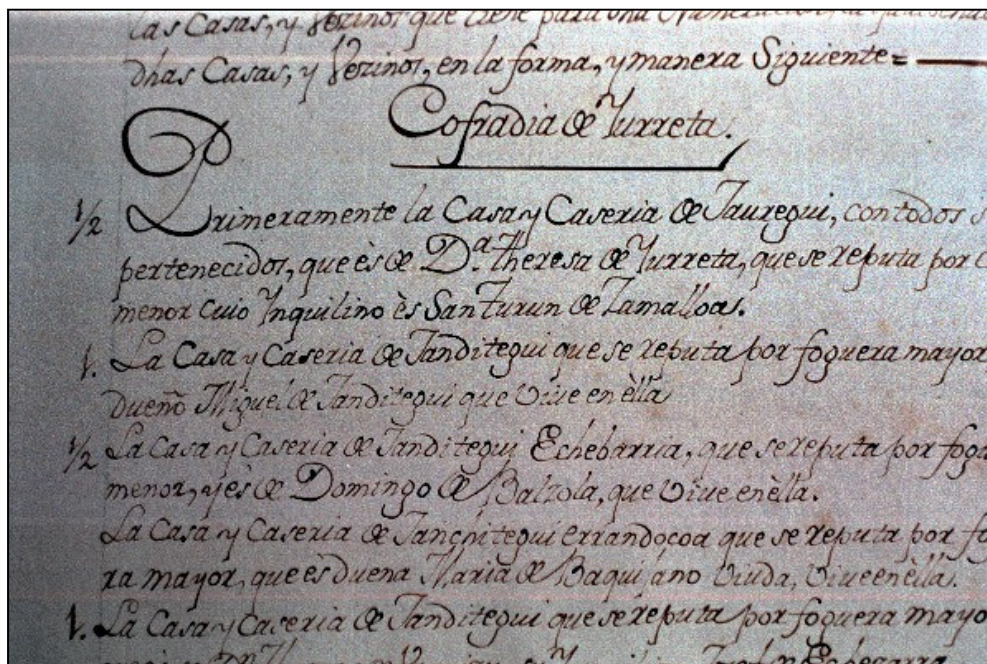 las Casas, y Vezinos que tiene para una
dhas Casas, y Vezinos, en la forma, y manera Siguiente =
Cofradia de Yurreta.
1/2 Primeramente la Casa y Caseria de Jauregui, con todos
pertenecidos, que ès de D.ª Theresa de Yurreta, que se reputa por
menor cuio Ynquilino ès San Turun de Zamalloa.
1. La Casa y Caseria de Sanditegui que se reputa por foguera mayor,
dueño Miguel de Sanditegui que Vive en èlla
1/2 La Casa y Caseria de Sanditegui Echebarria, que se reputa por fogu
menor, y ès de Domingo de Balzola, que Vive en èlla.
La Casa y Caseria de errandocoa que se reputa por fo
ra mayor, que ès duena Maria de Baquiano Viuda, Vive en èlla.
1. La Casa y Caseria de Sanditegui que se reputa por foguera mayo